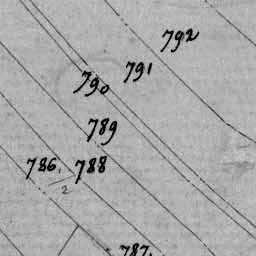 792
791
790
789
786. 788
2
787.